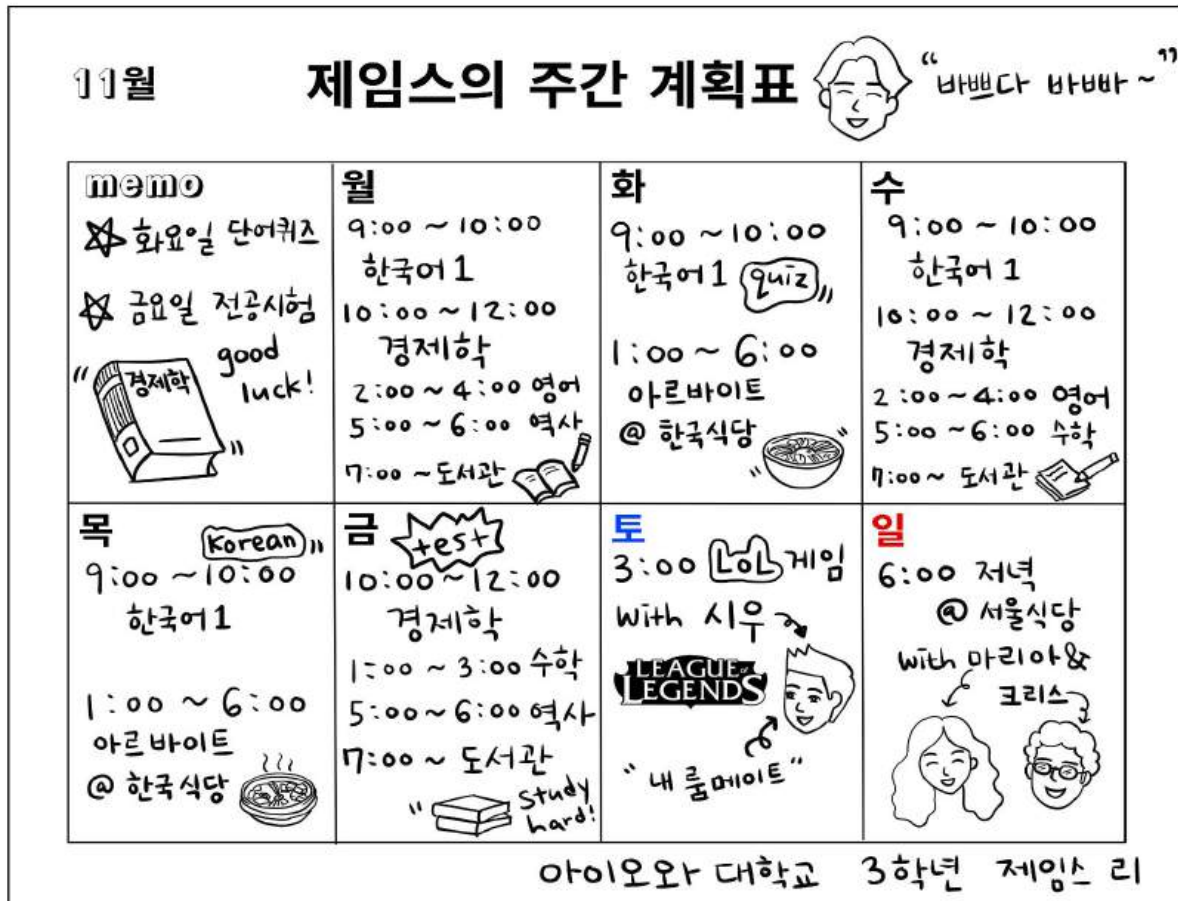 11월
제임스의 주간 계획표
“바쁘다 바빠~”
memo
화요일 단어퀴즈
금요일 전공시험
경제학
good
luck!
월
9:00 ~ 10:00
한국어 1
10:00 ~ 12:00
경제학
2:00 ~ 4:00 영어
5:00 ~ 6:00 역사
7:00 ~ 도서관
화
9:00 ~ 10:00
한국어 1 quiz
1:00 ~ 6:00
아르바이트
@ 한국식당
수
9:00 ~ 10:00
한국어 1
10:00 ~ 12:00
경제학
2:00 ~ 4:00 영어
5:00 ~ 6:00 수학
7:00 ~ 도서관
목
Korean
9:00 ~ 10:00
한국어 1
1:00 ~ 6:00
아르바이트
@ 한국식당
금 test
10:00 ~ 12:00
경제학
1:00 ~ 3:00 수학
5:00 ~ 6:00 역사
7:00 ~ 도서관
study
hard!
토
3:00 LOL 게임
with 시우
LEAGUE of
LEGENDS
“내 룸메이트”
일
6:00 저녁
@ 서울식당
with 마리아 &
크리스
아이오와 대학교 3학년 제임스 리